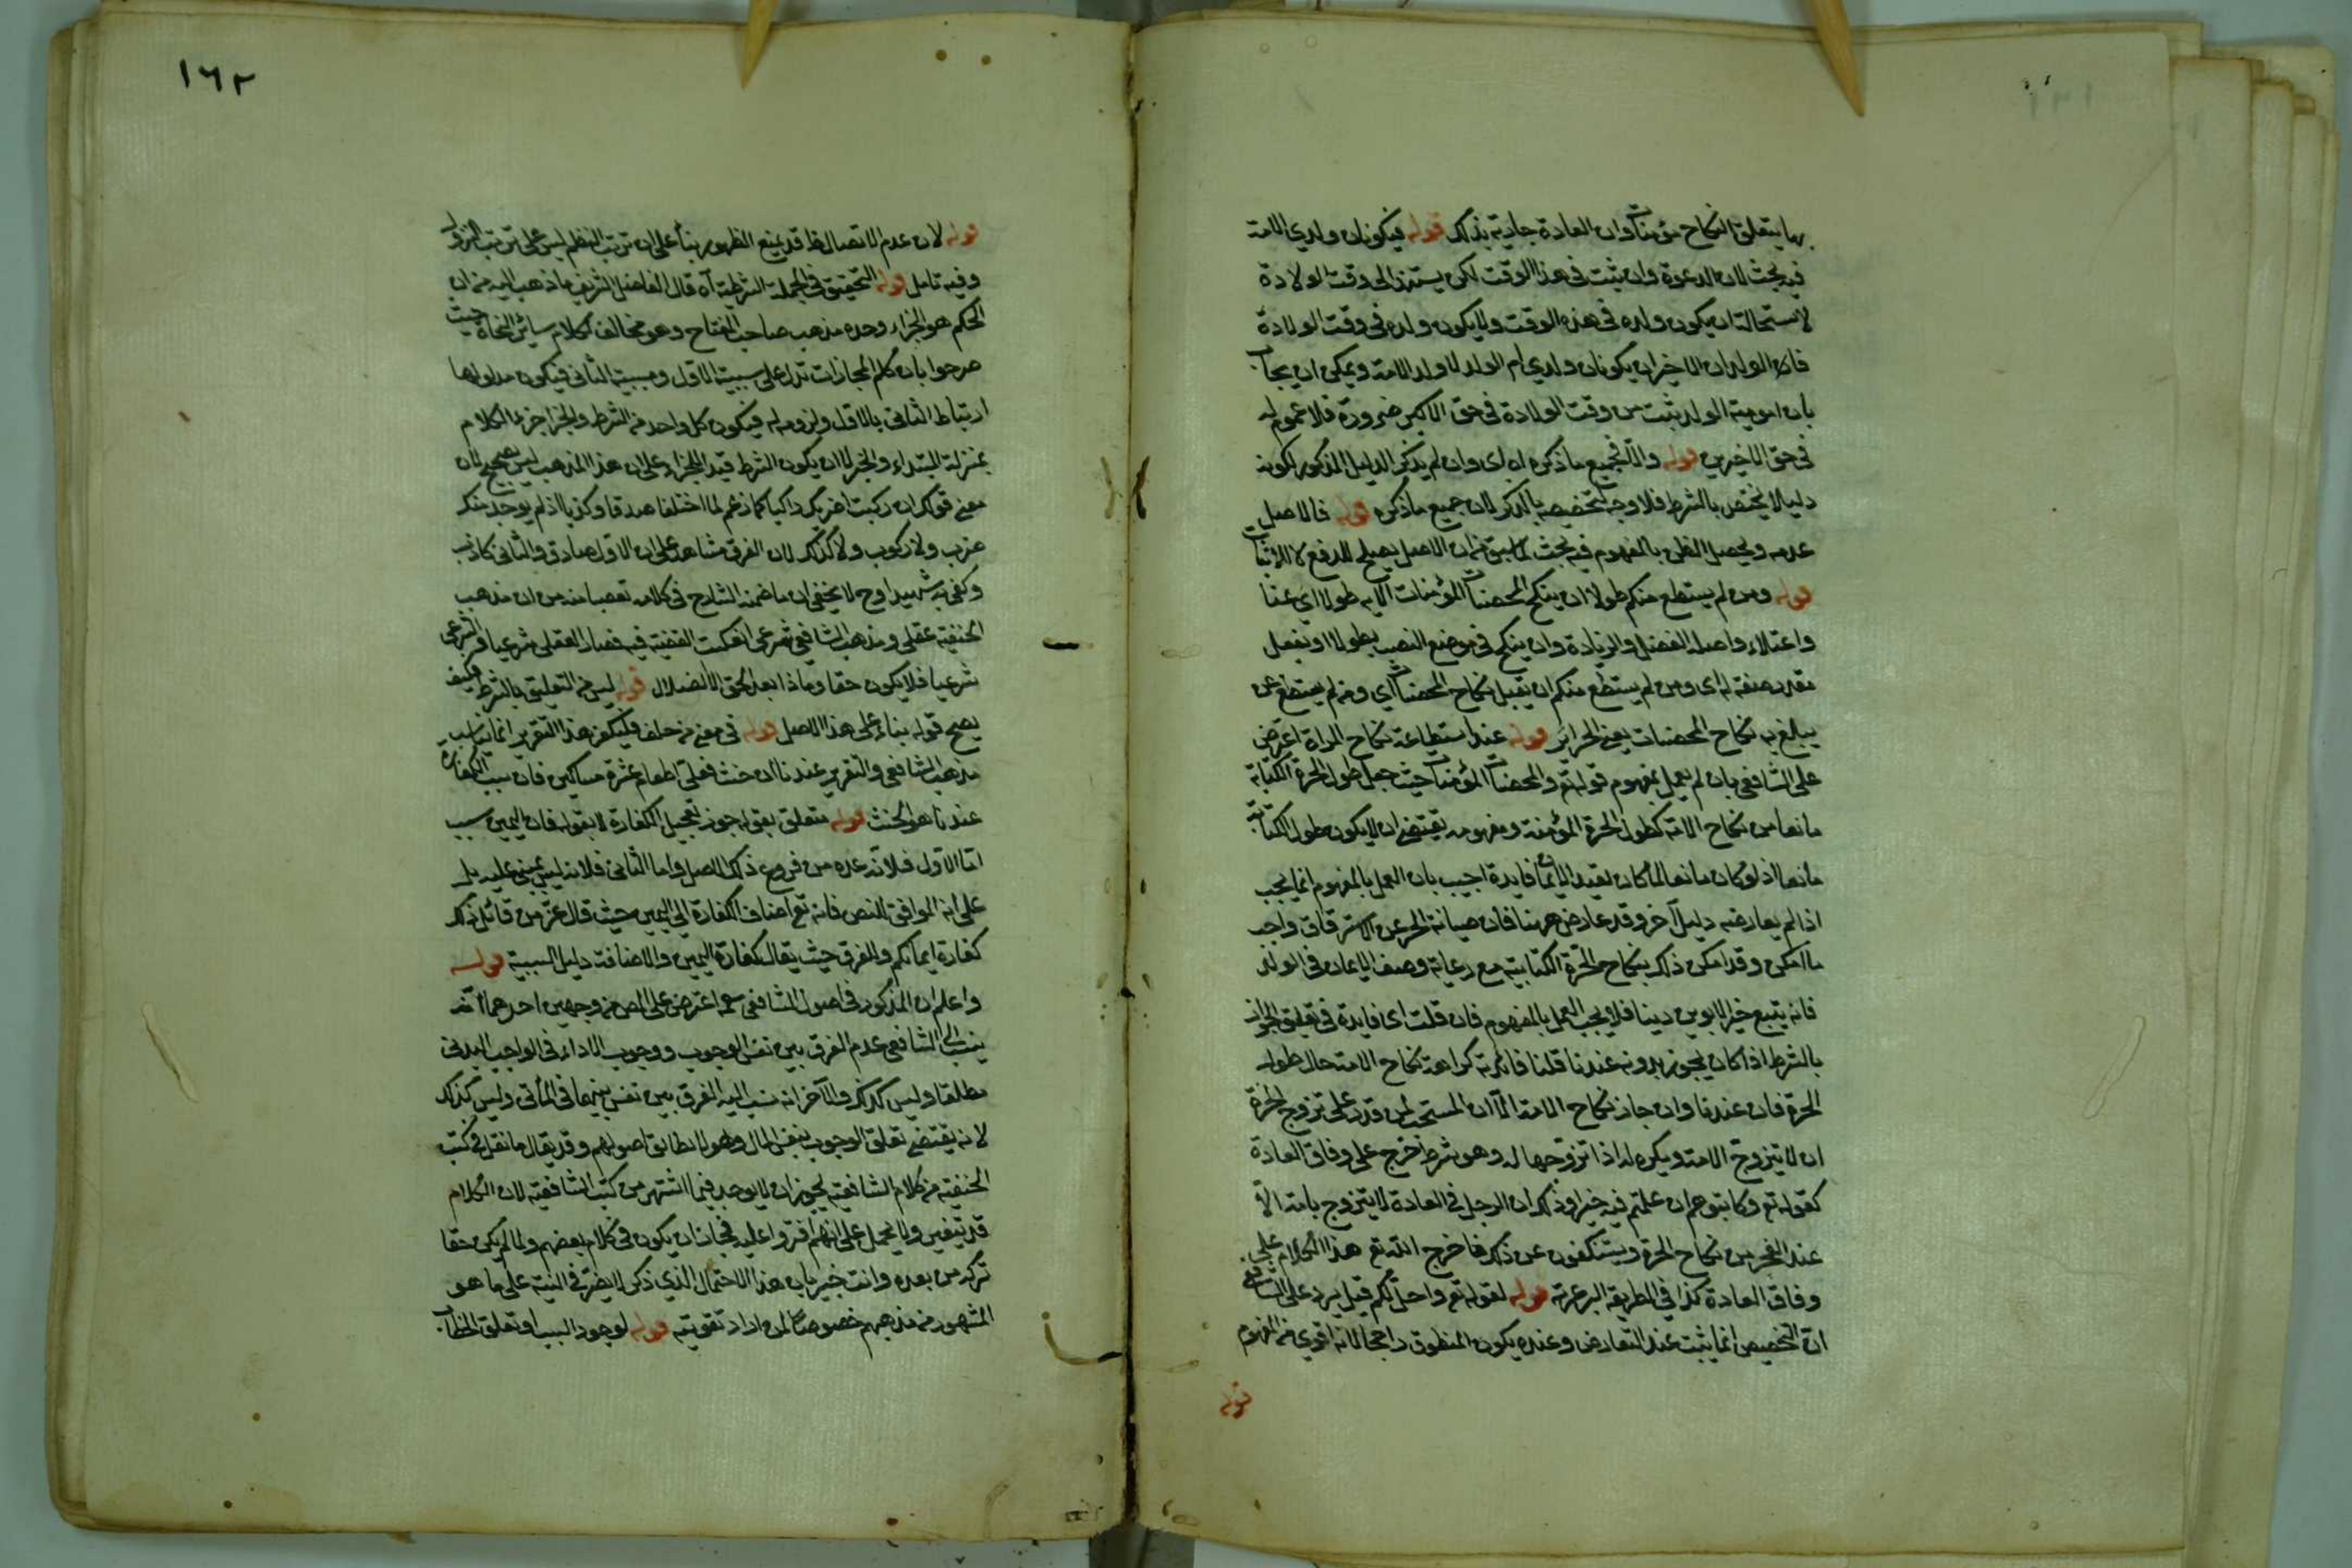 بها يتعلق النكاح مؤمنات وان العادة جارية بذلك قوله فيكونان ولدي الامة
فيه بحث لان الدعوة وان ثبت في هذا الوقت لكن يستند الى وقت الولادة
لاستحالة ان يكون ولده في هذه الوقت ولا يكون ولده في وقت الولادة
فاذا الولدان الاخيران يكونان ولدي ام الولد لا ولد الامة ويمكن ان يجاب
بان امومية الولد ثبت من وقت الولادة في حق الاكبر ضرورة فلا عموم له
في حق الاخيرين قوله والا فجميع ما ذكره اه اى وان لم يذكر الدليل المذكور لكونه
دليلا لا يختص بالشرط فلا وجه لتخصيصه بالذكر لان جميع ما ذكره قوله فالاصل
عدمه ويحصل الظن بالمفهوم فيه بحث لما سبق من ان الاصل يصلح للدفع لا للاثبات
قوله ومن لم يستطع منكم طولا ان ينكح المحصنات المؤمنات الآية طولا اي غنا
واعتلاء واصله الفضل والزيادة وان ينكح في موضع النصب بطولا او بفعل
مقدر صفة له اى ومن لم يستطع منكم ان نكاح المحصنات اي ومن لم يستطع غن
يبلغ به نكاح المحصنات يعنى الحرائر قوله عند استطاعة نكاح المراة اعترض
على الشافعي بان لم يعمل بمفهوم قوله تع والمحصنات المؤمنات حيث جعل طول الحرة الكتابية
مانعا من نكاح الامة كطول الحرة المؤمنة ومفهومه يقتضي ان لا يكون طول الكتابية
مانعا اذ لو كان مانعا لما كان لقيد الايمان فايدة اجيب بان العمل بالمفهوم انما يجب
اذا لم يعارضه دليل آخر وقد عارض ههنا فان صيانة الحر عن الاسترقاق واجب
ما امكن وقد امكن ذلك بنكاح الحرة الكتابية مع رعاية وصف الايمان في الولد
فانه يتبع خير الابوين دينا فلا يجب العمل بالمفهوم فان قلت اى فايدة في تعليق الجواز
بالشرط اذا كان يجوز بدونه عندنا قلنا فائدته كراهة نكاح الامة حال طول
الحرة فان عندنا وان جاز نكاح الامة الا ان المستحب لمن قدر على تزوج الحرة
ان لا يتزوج الامة ويكره له اذا تزوجها له وهو شرط خرج على وفاق العادة
كقوله تع وكاتبوهم ان علمتم فيهم خيرا وذلك ان الرجل في العادة لا يتزوج بامة الا
عند العجز من نكاح الحرة ويستنكفون عن ذلك فاخرج الله تع هذا الكلام على
وفاق العادة كذا في الطريقة البرغرية قوله لقوله تع واحل لكم قيل يرد على الشافعي
ان التخصيص انما يثبت عند التعارض وعنده يكون المنطوق راجحا لانه اقوى من المفهوم
قوله
١٦٢
قوله لان عدم الاتصال ظ قد يمنع الظهور بناء على ان ترتيب النظم ليس على ترتيب النزول
وفيه تامل قوله التحقيق في الجملة الشرطية آه قال الفاضل الشريف ما ذهب اليه من ان
الحكم هو الجزاء وحده مذهب صاحب المفتاح وهو مخالف لكلام سائر النحاة حيث
صرحوا بان كلم المجازات تدل على سببية الاول ومسببية الثاني فيكون مدلولها
ارتباط الثاني بالاول ولزومه له فيكون كل واحد من الشرط والجزا جزء الكلام
بمنزلة المبتداء والخبر لا ان يكون الشرط قيدا للجزاء على ان هذا المذهب ليس بصحيح لان
معنى قولك ان ركبت اضربك راكبا كما زعم لما اختلفا صدقا وكذبا اذا لم يوجد منك
ضرب ولا ركوب ولا كذلك لان الفرق مشاهد على ان الاول صادق والثاني كاذب
وكفى به شهيدا وح لا يخفى ان ما ضمنه الشارح في كلامه تعصبا منه من ان مذهب
الحنفية عقلى ومذهب الشافعي شرعى انعكست القضية فيه فصار العقلى شرعيا والشرعى
شرعيا فلا يكون حقا وماذا بعد الحق الا الضلال قوله ليس من التعليق بالشرط فكيف
يصح قوله بناء على هذا الاصل قوله في معنى من حلف فليكفر هذا التقرير انما يناسب
مذهب الشافعي والتقرير عندنا ان حنث فعليه اطعام عشرة مساكين فان سبب الكفارة
عندنا هو الحنث قوله متعلق بقوله جوز تعجيل الكفارة لا بقوله فان اليمين سبب
اما الاول فلانه عده من فروع ذلك الاصل واما الثاني فلانه ليس بمبنى عليه بل
على انه الموافق للنص فانه تع اضاف الكفارة الى اليمين حيث قال عز من قائل ذلك
كفارة ايمانكم والعرف حيث يقال كفارة اليمين والاضافة دليل السببية قوله
واعلم ان المذكور في اصول الشافعي رحمه اعترض على المص من وجهين احدهما انه
ينسب الى الشافعي عدم الفرق بين نفس الوجوب ووجوب الاداء في الواجب البدنى
مطلقا وليس كذلك والآخر انه نسب اليه الفرق بين نفس بينهما في المالى وليس كذلك
لانه يقتضي تعلق الوجوب بنفس المال وهو لا يطابق اصولهم وقد يقال ما نقل في كتب
الحنفية من كلام الشافعية يجوز ان لا يوجد فيما اشتهر من كتب الشافعية لان الكلام
قد يتغير ولا يحمل على انهم افتروا عليه فجاز ان يكون في كلام بعضهم ولما لم يكن حقا
تركه من بعده وانت خبير بان هذا الاحتمال الذي ذكر لا يضر في النية على ما هو
المشهور من مذهبهم خصوصا لمن اراد تقويته قوله لوجود السبب او تعلق الخطاب